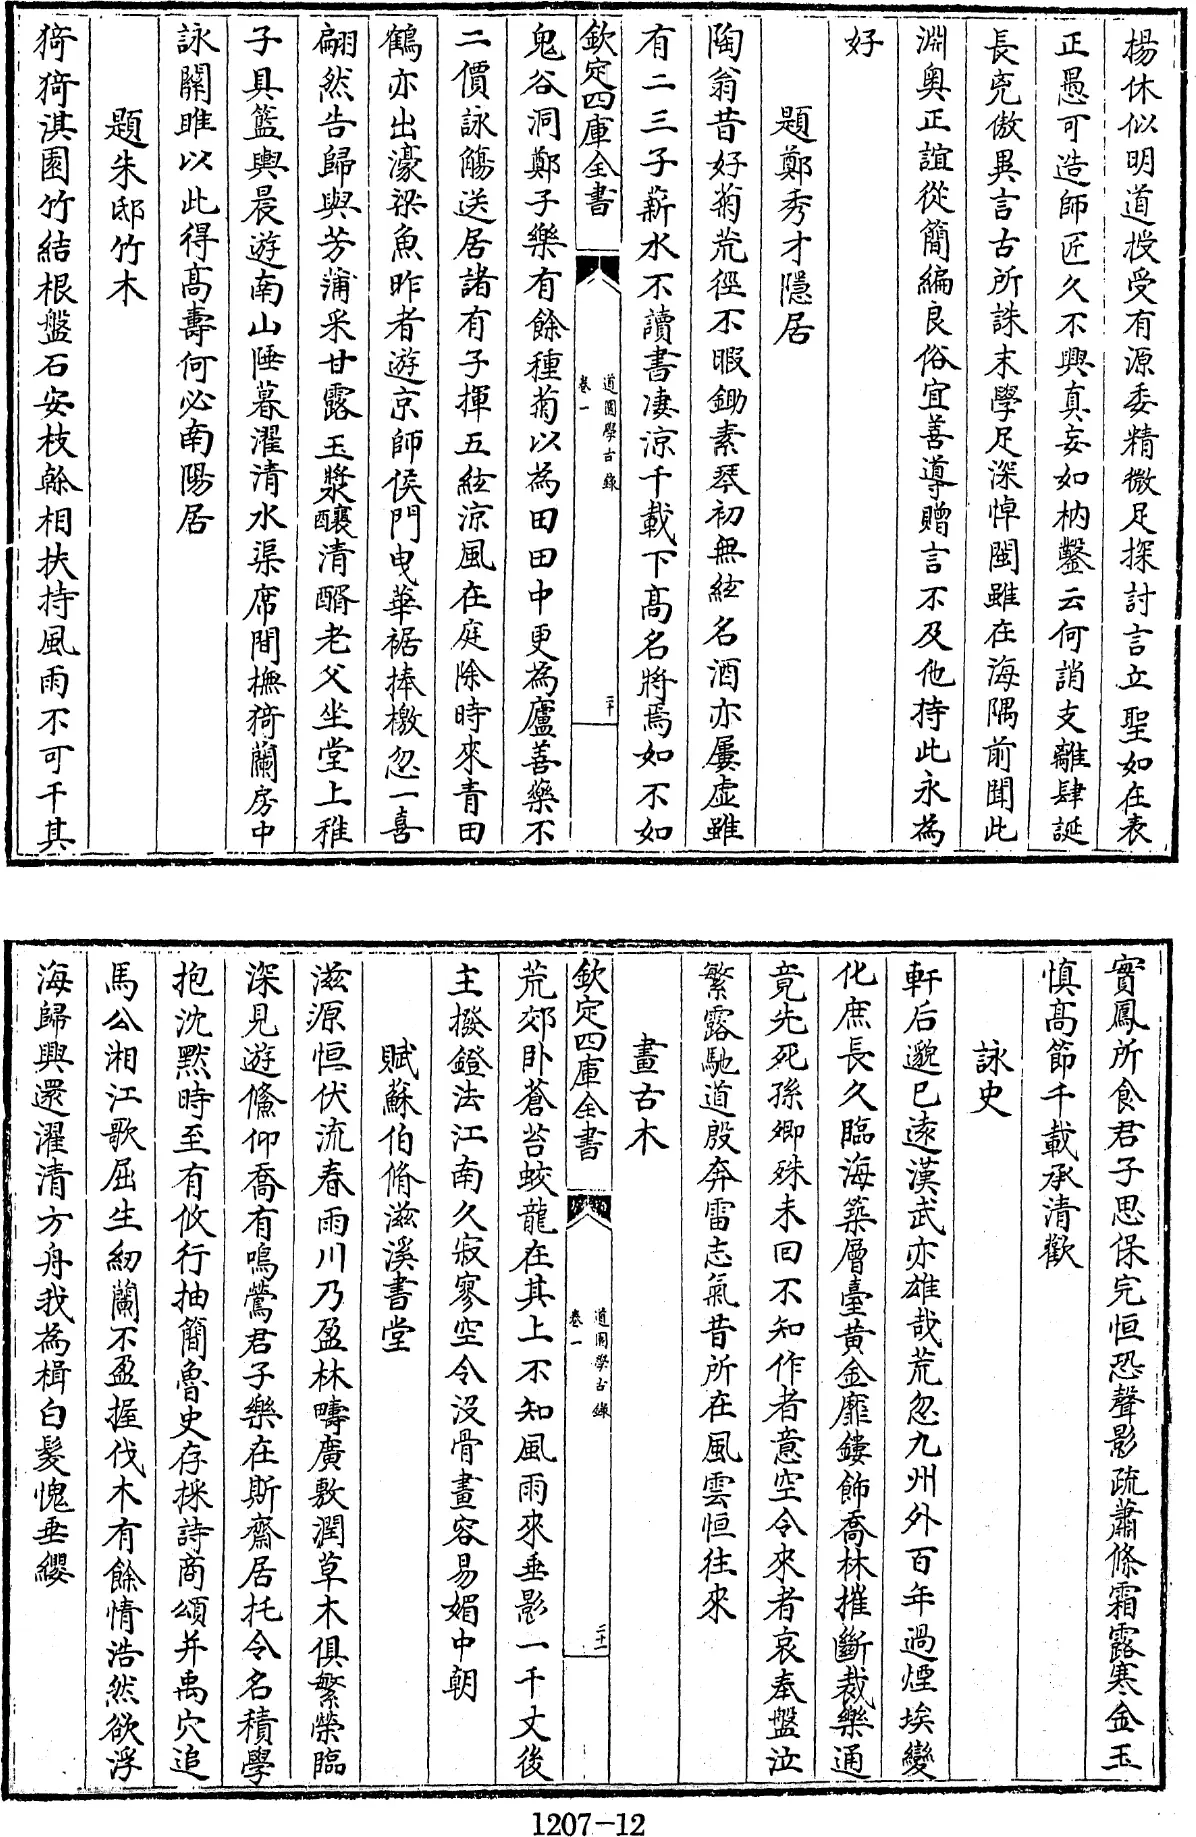 楊休似明道授受有源委精微足探討言立聖如在表
正愚可造師匠久不興真妄如枘鑿云何誚支離肆誕
長兇傲異言古所誅末學足深悼閩雖在海隅前聞此
淵奧正誼從簡編良俗宜善導贈言不及他持此永為
好
題鄭秀才隱居
陶翁昔好菊荒徑不暇鋤素琴初無絃名酒亦屢虛雖
有二三子薪水不讀書凄涼千載下高名將焉如不如
欽定四庫全書
道園學古錄
卷一
二十
鬼谷洞鄭子樂有餘種菊以為田田中更為廬善藥不
二價詠觴送居諸有子揮五絃涼風在庭除時來青田
鶴亦出濠梁魚昨者遊京師侯門曳華裾捧檄忽一喜
翩然告歸與芳蒲采甘露玉漿釀清醑老父坐堂上稚
子具籃輿晨遊南山陲暮濯清水渠席間撫猗蘭房中
詠關雎以此得高壽何必南陽居
題朱邸竹木
猗猗淇園竹結根盤石安枝榦相扶持風雨不可干其
實鳳所食君子思保完恒恐聲影疏蕭條霜露寒金玉
慎高節千載承清歡
詠史
軒后邈已遠漢武亦雄哉荒忽九州外百年過煙埃變
化庶長久臨海築層臺黃金靡鏤飾喬林摧斷裁欒通
竟先死孫卿殊未回不知作者意空令來者哀奉盤泣
繁露馳道殷奔雷志氣昔所在風雲恒往來
畫古木
欽定四庫全書
道園學古錄
卷一
二十一
荒郊卧蒼苔蛟龍在其上不知風雨來垂影一千丈後
主撥鐙法江南久寂寥空令沒骨畫容易媚中朝
賦蘇伯脩滋溪書堂
滋源恒伏流春雨川乃盈林疇廣敷潤草木俱繁榮臨
深見遊鯈仰喬有鳴鶯君子樂在斯齋居托令名積學
抱沈默時至有攸行抽簡魯史存採詩商頌并禹穴追
馬公湘江歌屈生紉蘭不盈握伐木有餘情浩然欲浮
海歸興還濯清方舟我為楫白髮愧垂纓
1207-12